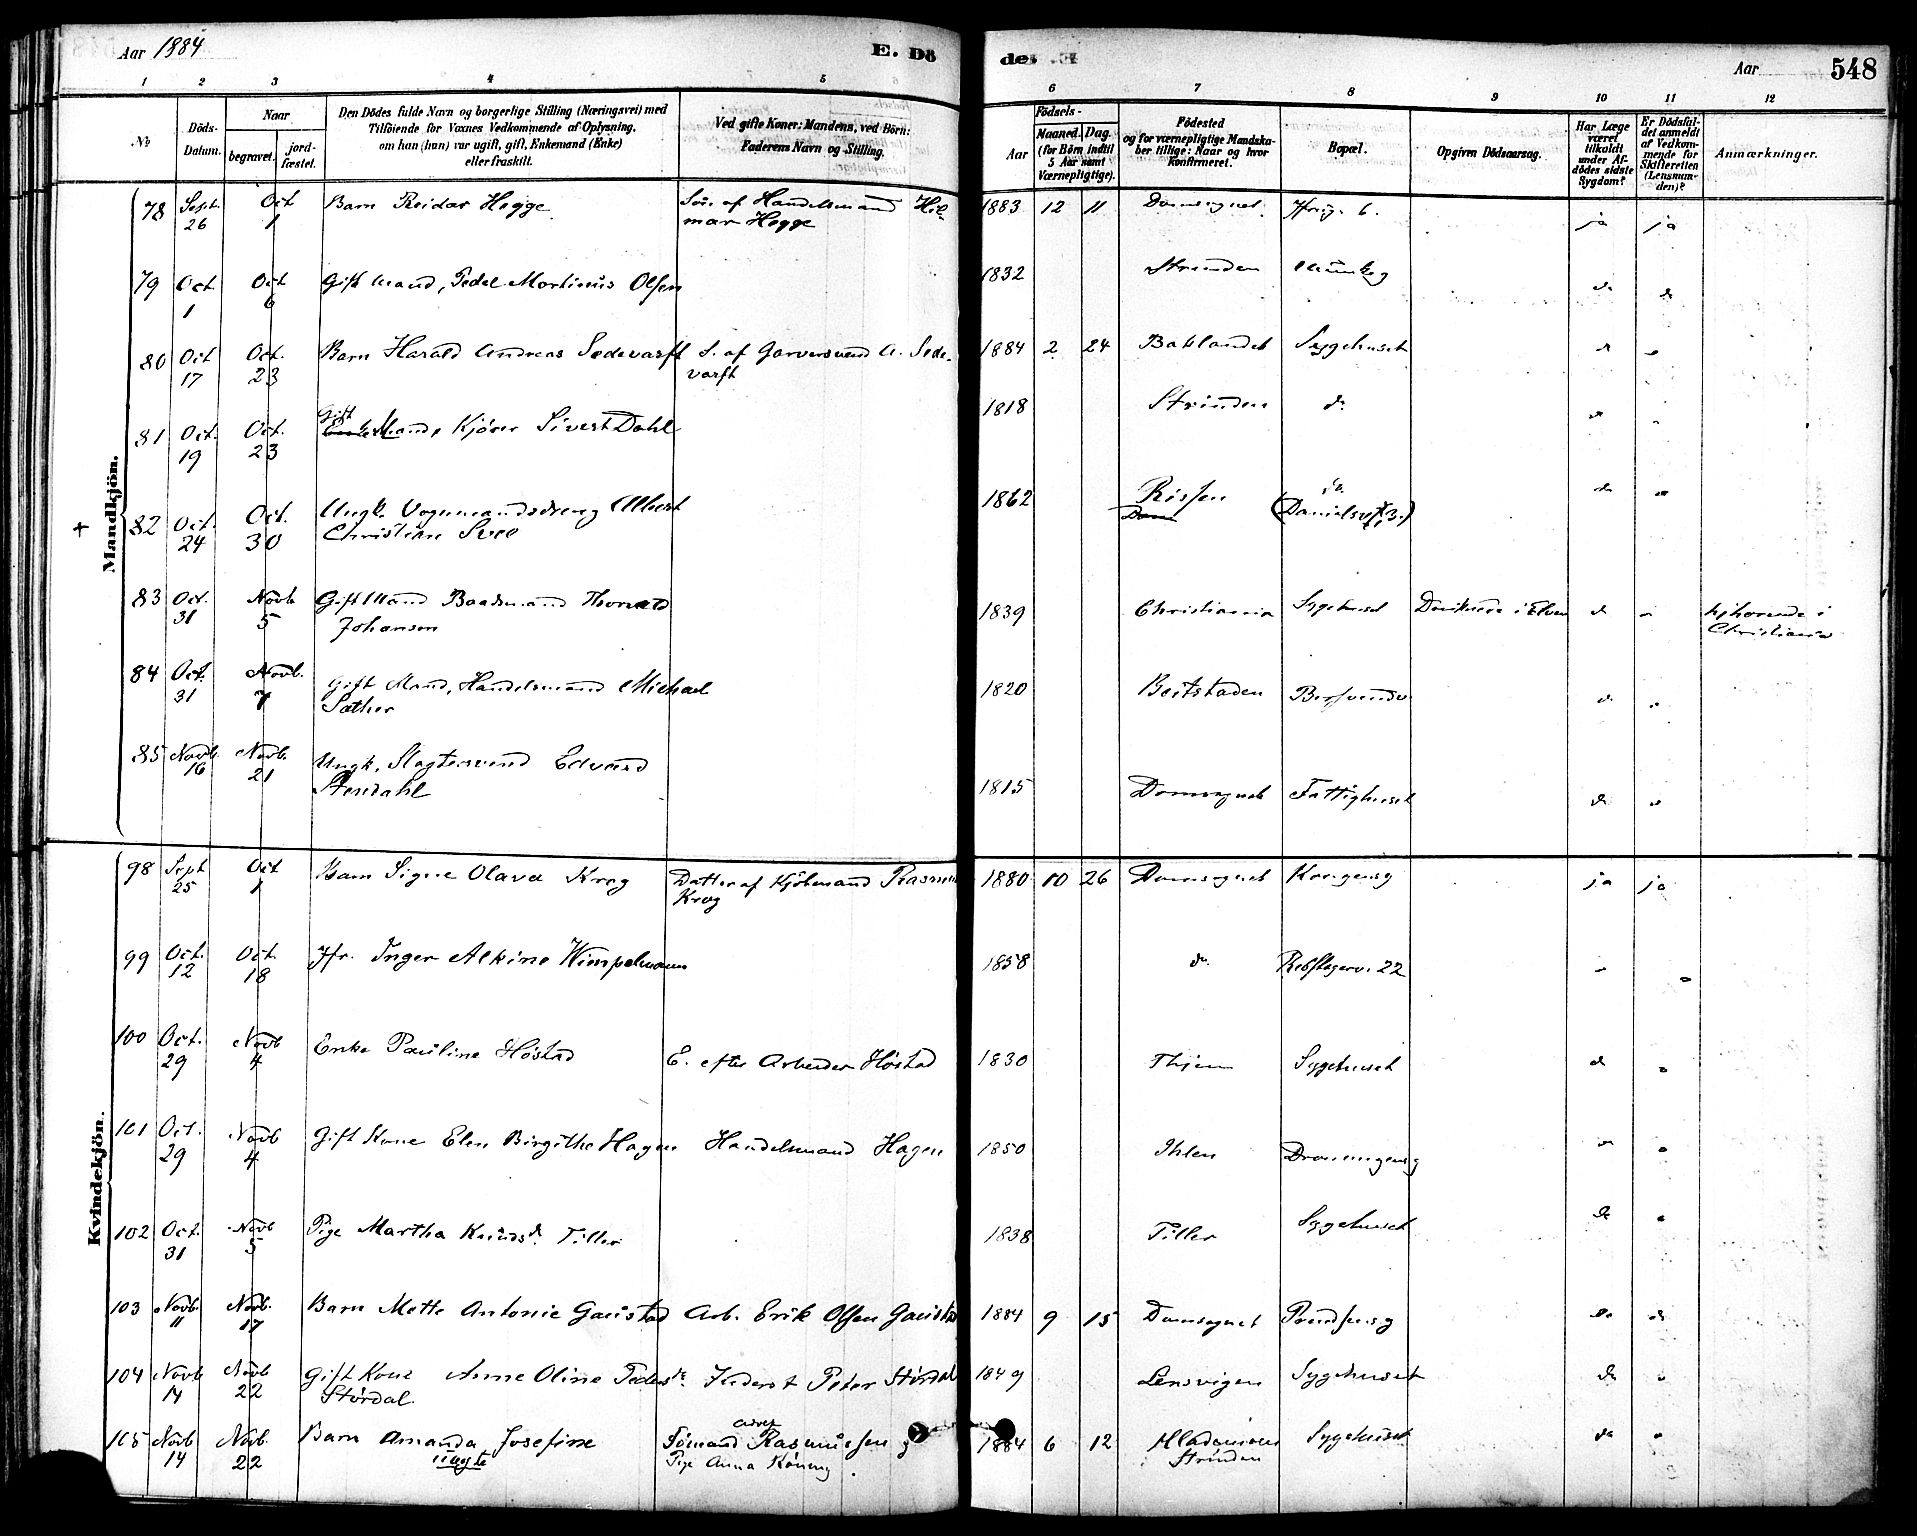 Aar 1884
E. Dö
de. E
Aar
548
1 2 3 4 5 6 7 8 9 10 11 12
No
Döds-
Datum.
Naar
begravet.
jord-
fæstet.
Den Dödes fulde Navn og borgerlige Stilling (Næringsvei) med
Tilföiende for Voxnes Vedkommende af Oplysning,
om han (hun) var ugift, gift, Enkemand (Enke)
eller fraskilt.
Ved gifte Koner: Mandens, ved Börn:
Faderens Navn og Stilling.
Födsels-
Aar
Maaned. Dag.
(for Börn indtil
5 Aar samt
Værnepligtige).
Födested
og for værnepligtige Mandska-
ber tillige: Naar og hvor
Konfirmeret.
Bopæl.
Opgiven Dödsaarsag.
Har Læge
været
tilkaldt
under Af-
dödes sidste
Sygdom?
Er Dödsfal-
det anmeldt
af Vedkom-
mende for
Skifteretten
(Lensman-
den)?
Anmærkninger.
Mandkjön.
78 Sept. 26 Oct 1 Barn Reidar Hegge Sön af Handelsmand Hil-
mar Hegge 1883 12 11 Domsognet 6. ja ja
79 Oct 1 Oct 6 Gift Mand, Pedel Martinus Olsen 1832 Strinden Munkeg do do
80 Oct 17 Oct. 23 Barn Harald Andreas Sedevarft S. af Garversvend A. Sede-
varft 1884 2 24 Baklandet Sygehuset do
81 Oct. 19 Oct. 23 Gift
Mand, Kjörer Sivert Dahl 1818 Strinden do do
+ 82 Oct. 24 Oct. 30 Ungk. Vognmandsdreng Albert
Christian 1862 Rissen do
do
83 Oct. 31 Novb 5 Gift Mand Baadsmand Thorvald
Johansen 1839 Christiania Sygehuset Druknede i Elven do hjhörende i
Christiania
84 Oct. 31 Novb. 7 Gift Mand, Handelsmand Michael
Sæther 1820 Beitstaden do
85 Novb. 16 Novb. 21 Ungk. Slagtersvend Edvard
Stendahl 1815 Domsognet Fattighuset do
Kvindekjön.
98 Sept 25 Oct 1 Barn Signe Olava Krog Datter af Kjöbmand Rasmus
Krog 1880 10 26 Domsognet Kongensg ja ja
99 Oct. 12 Oct. 18 Jfr. Inger Alkine Wimpelmann 1858 do Rebslagerv. 22
100 Oct. 29 Novb 4 Enke Pauline Höstad E. efter Arbeider Höstad 1830 Sygehuset do
101 Oct. 29 Novb 4 Gift Kone Elen Birgitha Hagen Handelsmand Hagen 1850 Ihlen Dronningensg
102 Oct. 31 Novb 5 Pige Martha Knudsd. Tiller 1838 Tiller Sygehuset do
103 Novb. 11 Novb. 17 Barn Mette Antonie Gaustad Arb. Erik Olsen Gaustad 1884 9 15 Domsognet do do
104 Novb 14 Novb 22 Gift Kone Anne Oline Pedersdr.
Stördal. Inderst Peter Stördal 1849 Lensvigen Sygehuset do
105 Novb 14 Novb. 22 Barn Amanda Josefine
uægte Sömand Rasmussen og
Pige Anna 1884 6 12
Strinden Sygehuset do